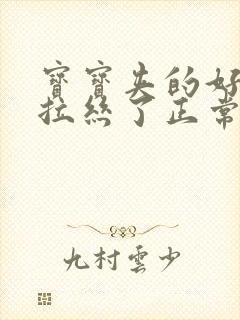 寶寶失的好
拉絲了正常
九村雲少